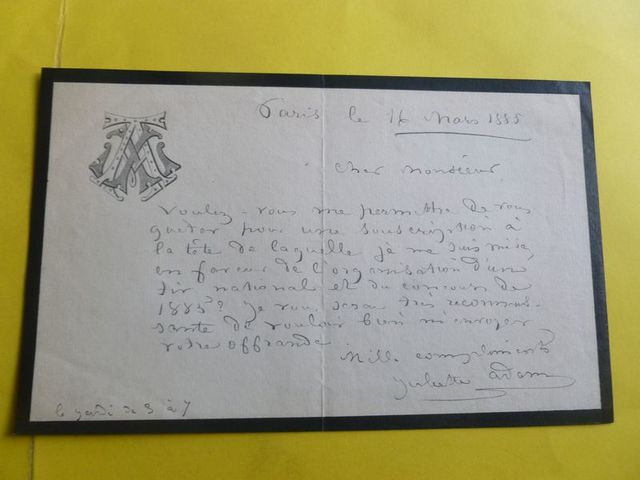 Paris le 16 Mars 1885
Cher Monsieur
Voulez-vous me permettre de vous
quêter pour une souscription à
la tête de laquelle je me suis mise,
en faveur de l'organisation d'un
tir national et du concours de
1885? Je vous serai très reconnais-
sante de vouloir bien m'envoyer
votre offrande
Mille compliments
Juliette Adam
le jeudi de 3 à 7